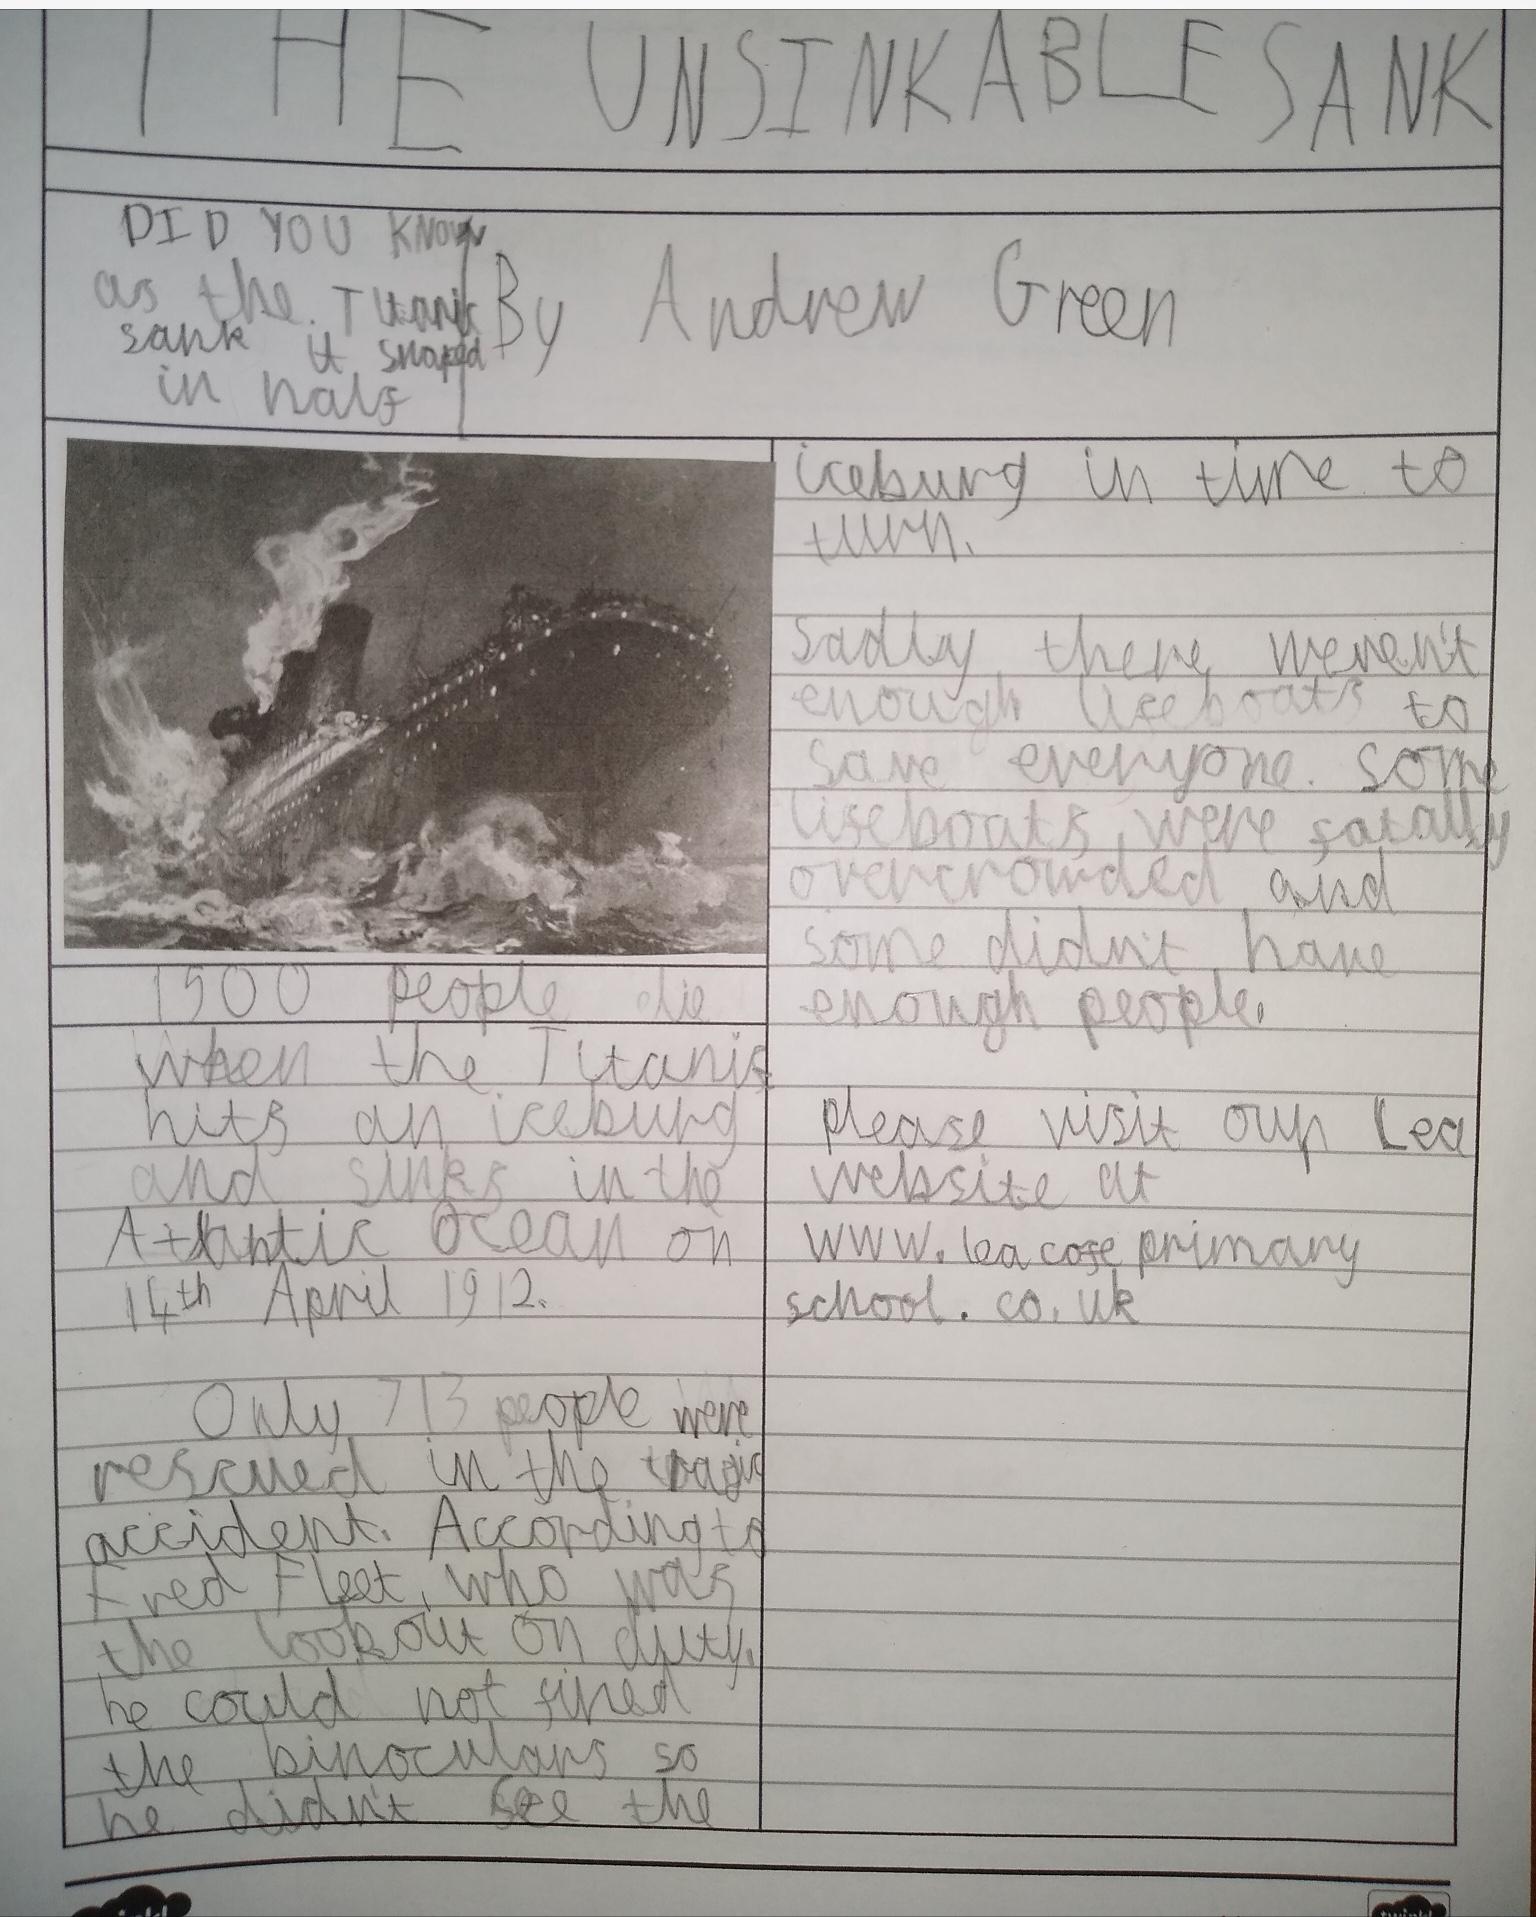 THE UNSINKABLE SANK
DID YOU KNOW
as the Titanic
sank it snaped
in half
By Andrew Green
1500 people die
when the Titanic
hits an iceburg
and sinks in the
Atlantic Ocean on
14th April 1912.
Only 713 people were
rescued in the tragic
accident. According to
Fred Fleet, who was
the lookout on duty,
he could not fined
the binoculars so
he didn't see the
iceburg in time to
turn.
Sadly there weren't
enough lifeboats to
save everyone. Some
lifeboats were fatally
overcrowded and
some didn't have
enough people.
please visit our Lea
website at
www.leacofeprimary
school.co.uk
twinkl